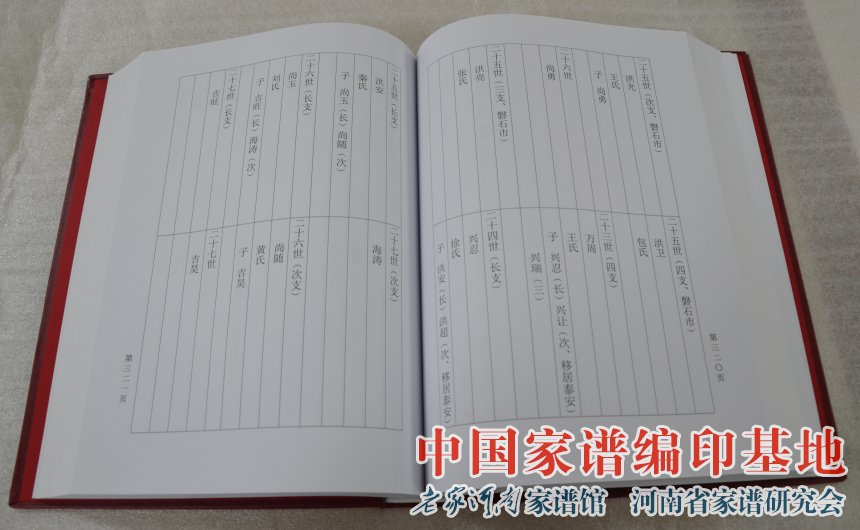 二十五世（次支、磐石市）
洪光
王氏
子 尚勇
二十六世
尚勇
二十五世（三支、磐石市）
洪亮
张氏
二十五世（四支、磐石市）
洪卫
包氏
二十三世（四支）
万周
王氏
子 兴忍（长）兴让（次、移居泰安）
兴瑞（三）
二十四世（长支）
兴忍
徐氏
子 洪安（长）洪超（次、移居泰安）
第三二〇页
二十五世（长支）
洪安
秦氏
子 尚玉（长）尚随（次）
二十六世（长支）
尚玉
刘氏
子 吉旺（长）海涛（次）
二十七世（长支）
吉旺
二十七世（次支）
海涛
二十六世（次支）
尚随
黄氏
子 吉昊
二十七世
吉昊
第三二一页
中国家谱编印基地
老家河南家谱馆 河南省家谱研究会